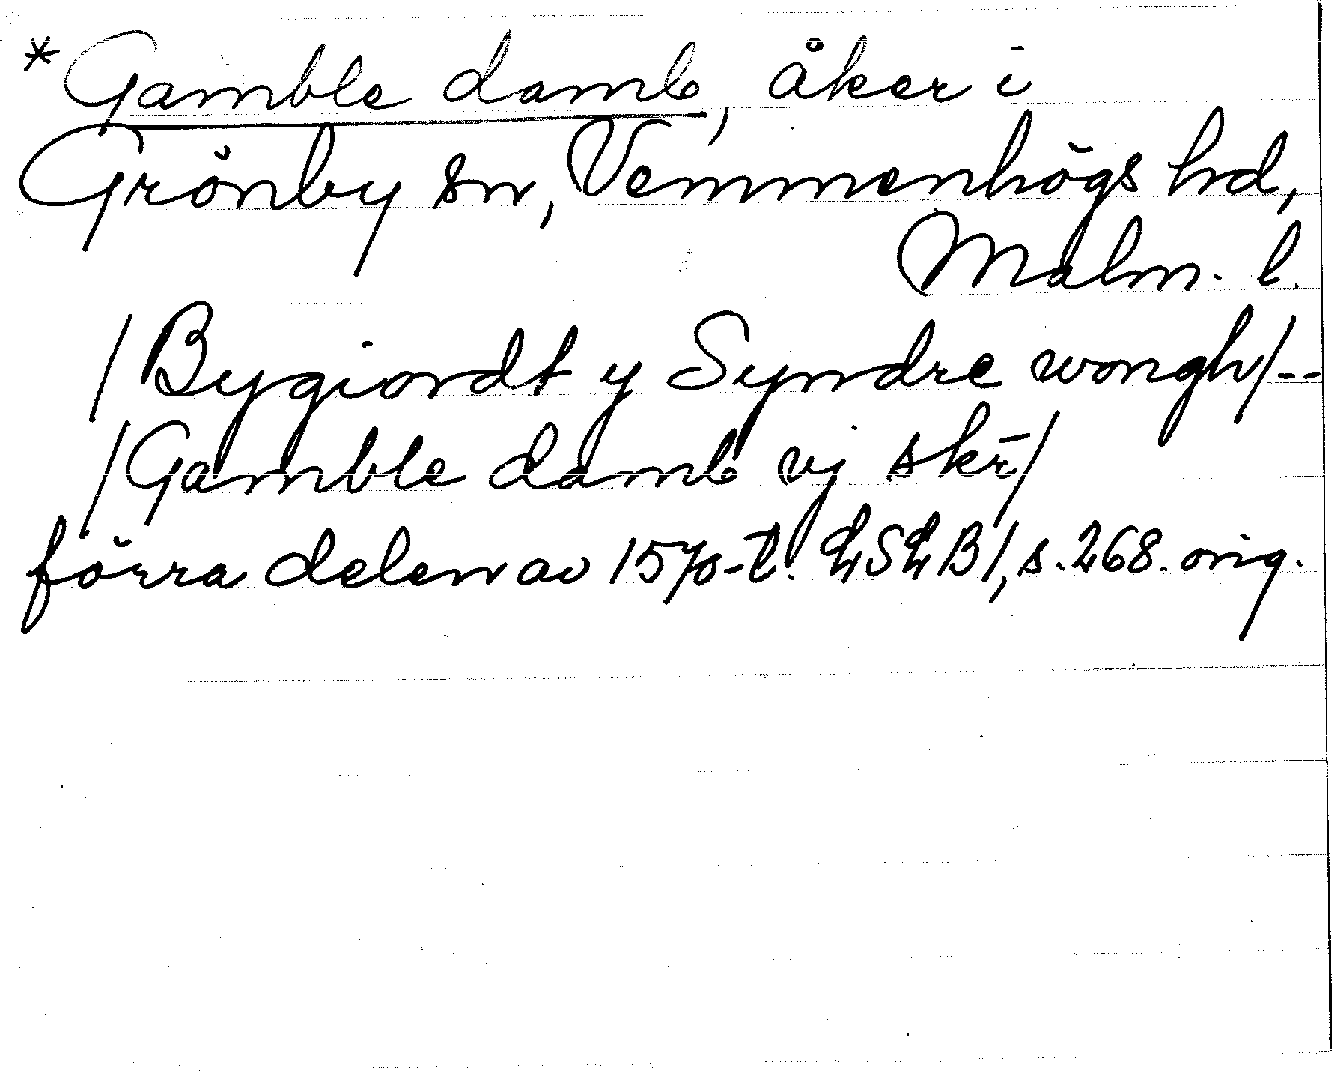 * Gamble damb, åker i
Grönby sn, Vemmenhögs hd,
Malm. l.
/Bygiordt y Syndre wongh/--
/Gamble damb vj skr̄/
förra delen av 1570-t. LSLB1, s. 268. orig.